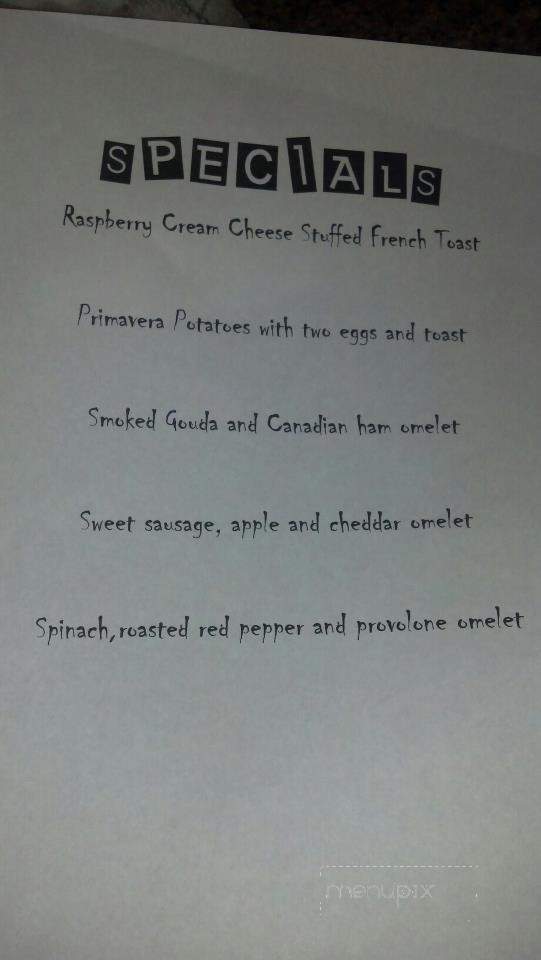 SPEC1ALS
Raspberry Cream Cheese Stuffed French Toast
Primavera Potatoes with two eggs and toast
Smoked Gouda and Canadian ham omelet
Sweet sausage, apple and cheddar omelet
Spinach, roasted red pepper and provolone omelet
menupix